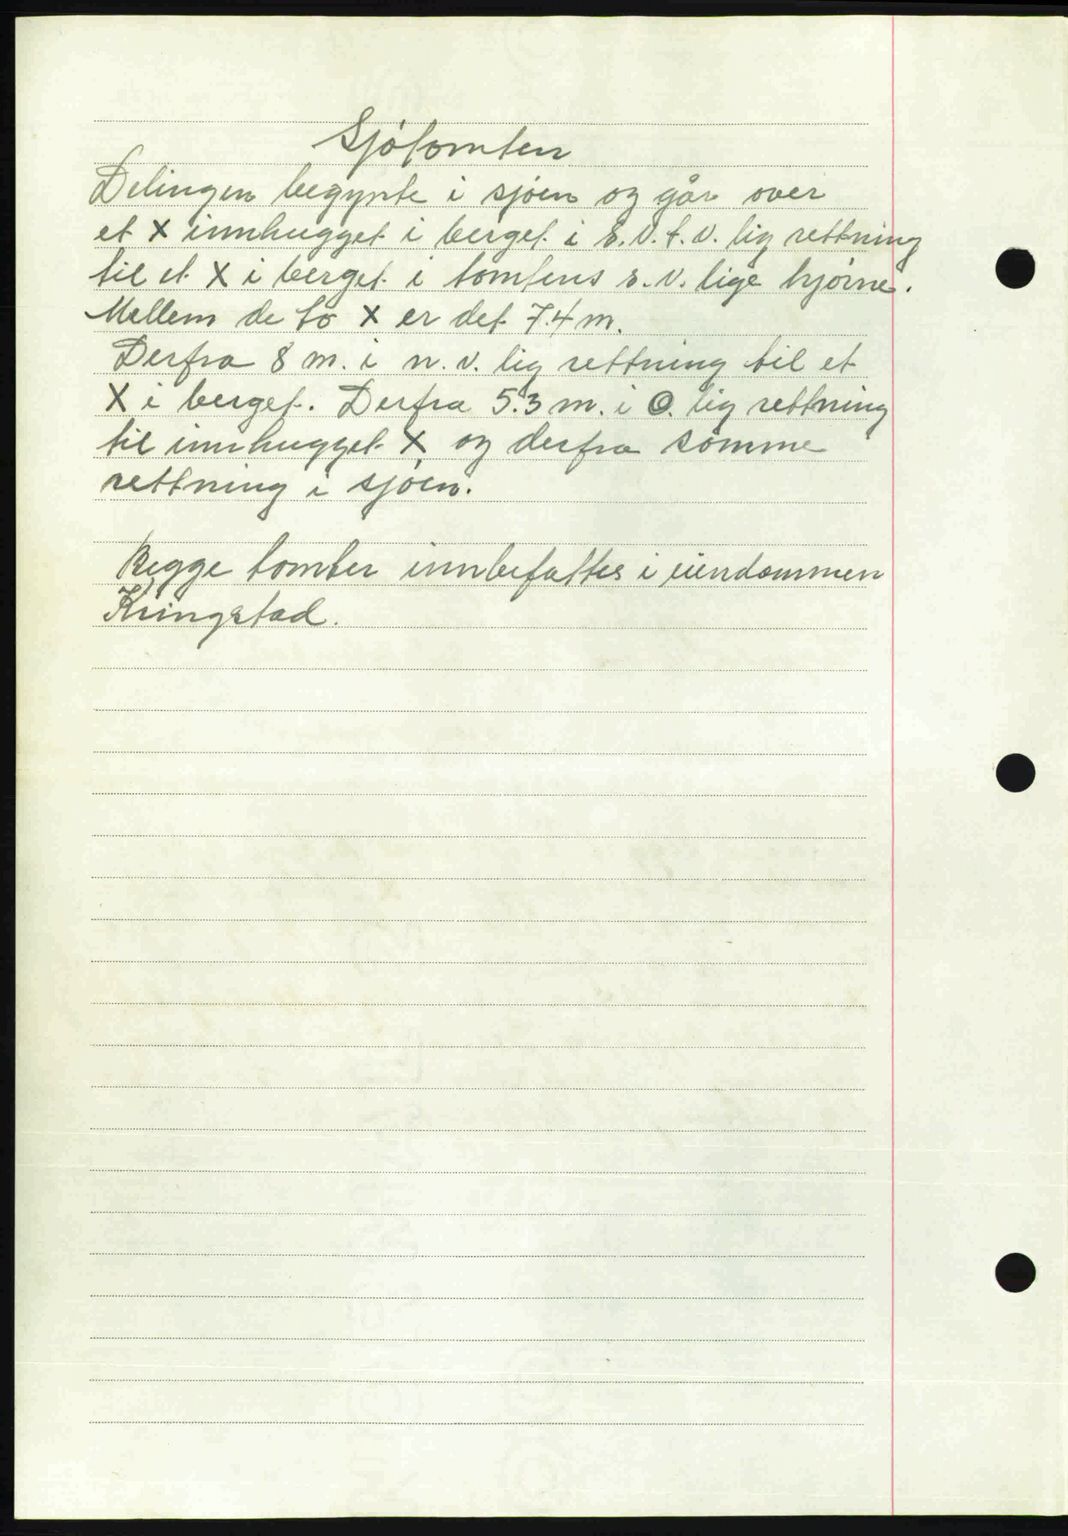 Sjøtomten
Delingen begynte i sjøen og går over
et X innhugget i berget i s.v.t.v. lig rettning
til et X i berget i tomtens s.v. lige hjørne.
Mellem de to X er det 7.4 m.
Derfra 8 m. i n.v. lig rettning til et
X i berget. Derfra 5.3 m. i O. lig rettning
til innhugget X og derfra samme
rettning i sjøen.
Begge tomter innbefattes i eiendommen
Kringstad.